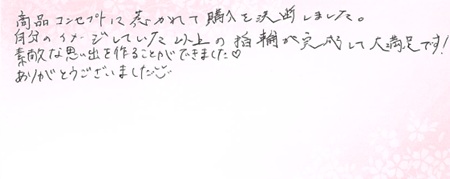 商品コンセプトに惹かれて購入を決断しました。
自分のイメージしていた以上の指輪が完成して大満足です!
素敵な思い出を作ることができました♡
ありがとうございました